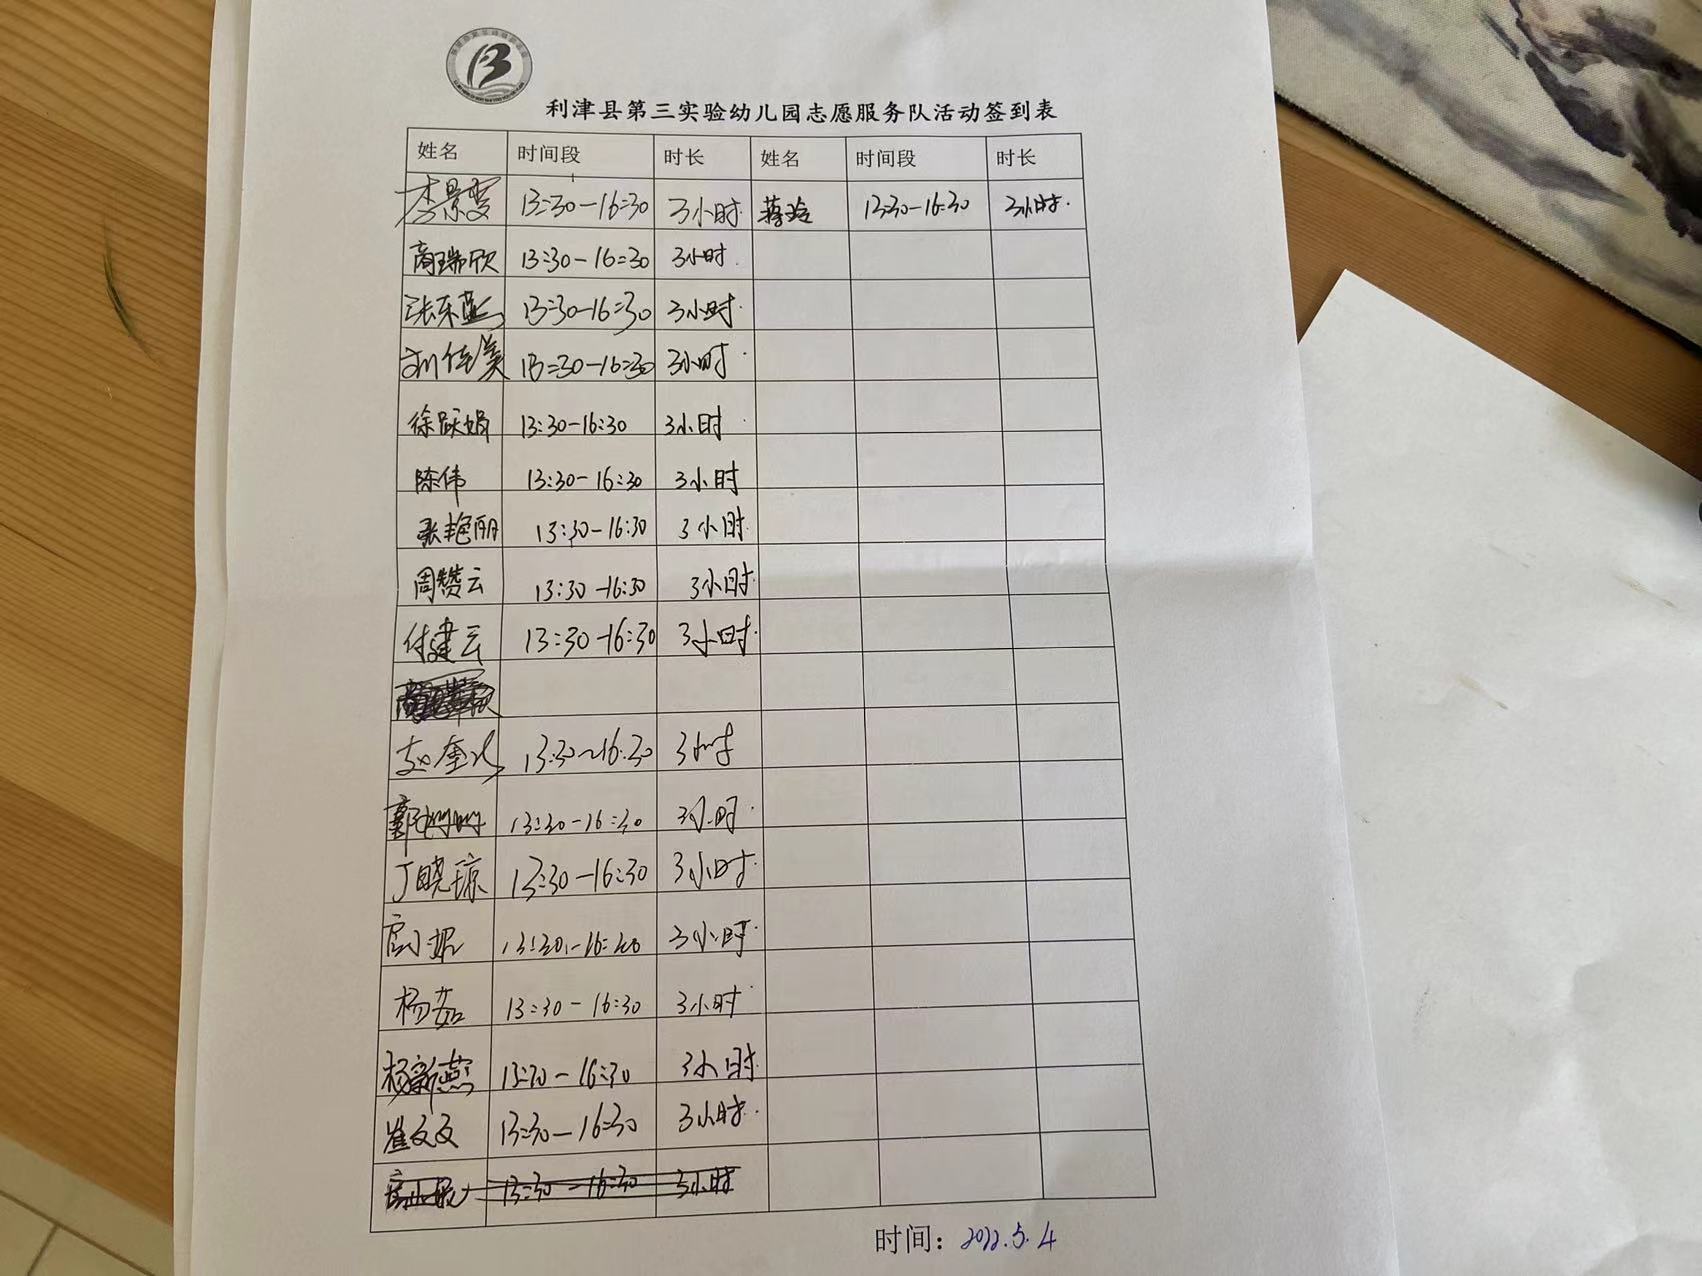 利津县第三实验幼儿园志愿服务队活动签到表
姓名 时间段 时长 姓名 时间段 时长
李景雯 13:30-16:30 3小时 蒋玲 13:30-16:30 3小时.
商瑞欣 13:30-16:30 3小时.
张东燕 13:30-16:30 3小时.
刘佳美 13:30-16:30 3小时
徐跃娟 13:30-16:30 3小时
陈伟 13:30-16:30 3小时
张艳丽 13:30-16:30 3小时
周赞云 13:30-16:30 3小时
付建云 13:30-16:30 3小时.
赵奎 13:30~16:30 3小时
郭 13:30-16:30 3小时
丁晓琼 13:30-16:30 3小时
13:30-16:30 3小时
杨茹 13:30-16:30 3小时
杨新燕 13:30-16:30 3小时
崔文文 13:30-16:30 3小时.
13:30-16:30 3小时
时间：2022.5.4